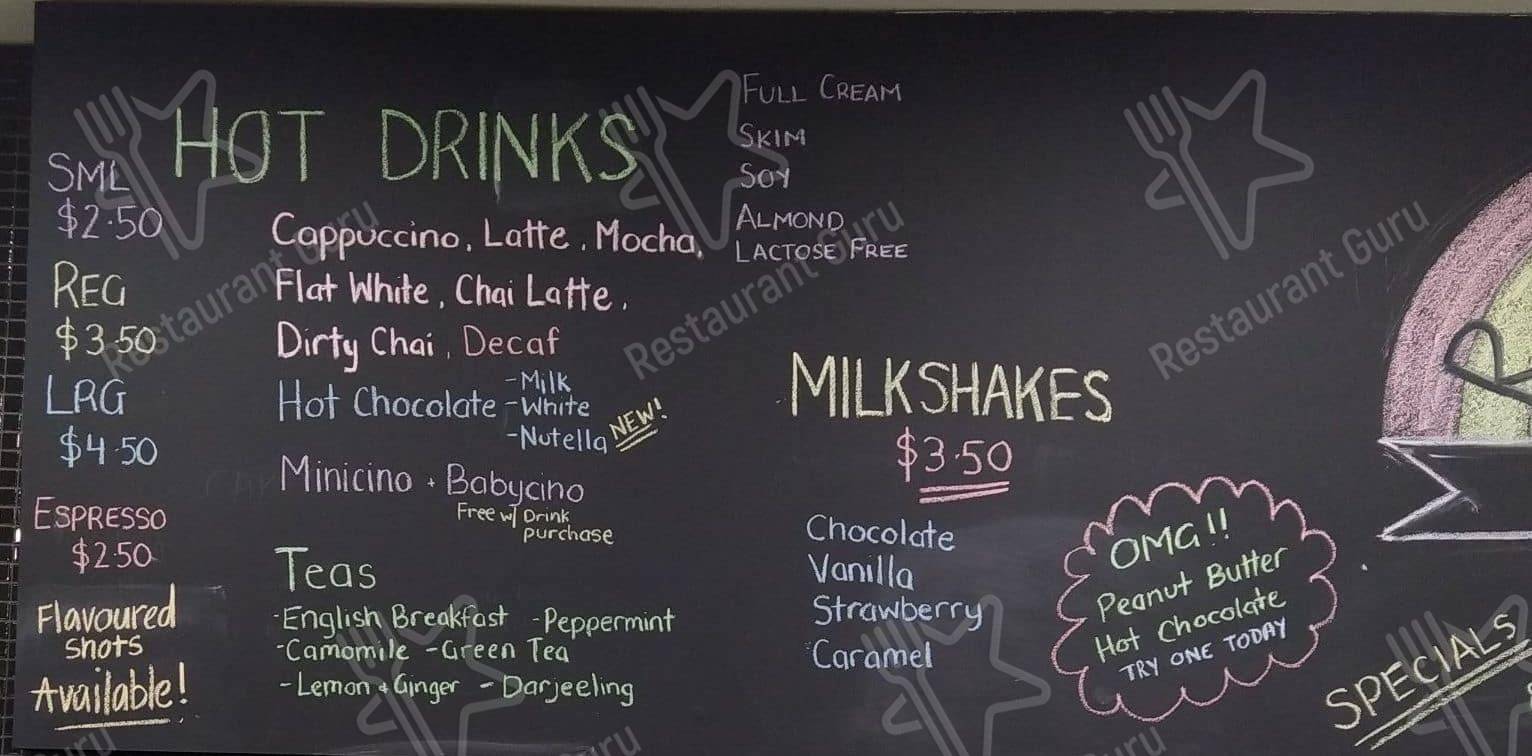 HOT DRINKS
SML
$2.50
REG
$3.50
LRG
$4.50
ESPRESSO
$2.50
Flavoured
shots
Available!
Cappuccino, Latte, Mocha,
Flat White, Chai Latte,
Dirty Chai, Decaf
Hot Chocolate -Milk
-White
-Nutella NEW!
Minicino + Babycino
Free w/ Drink
purchase
Teas
-English Breakfast -Peppermint
-Camomile -Green Tea
-Lemon + Ginger - Darjeeling
FULL CREAM
SKIM
SOY
ALMOND
LACTOSE FREE
MILKSHAKES
$3.50
Chocolate
Vanilla
Strawberry
Caramel
OMG!!
Peanut Butter
Hot Chocolate
TRY ONE TODAY
SPECIALS
Restaurant Guru
Restaurant Guru
Restaurant Guru